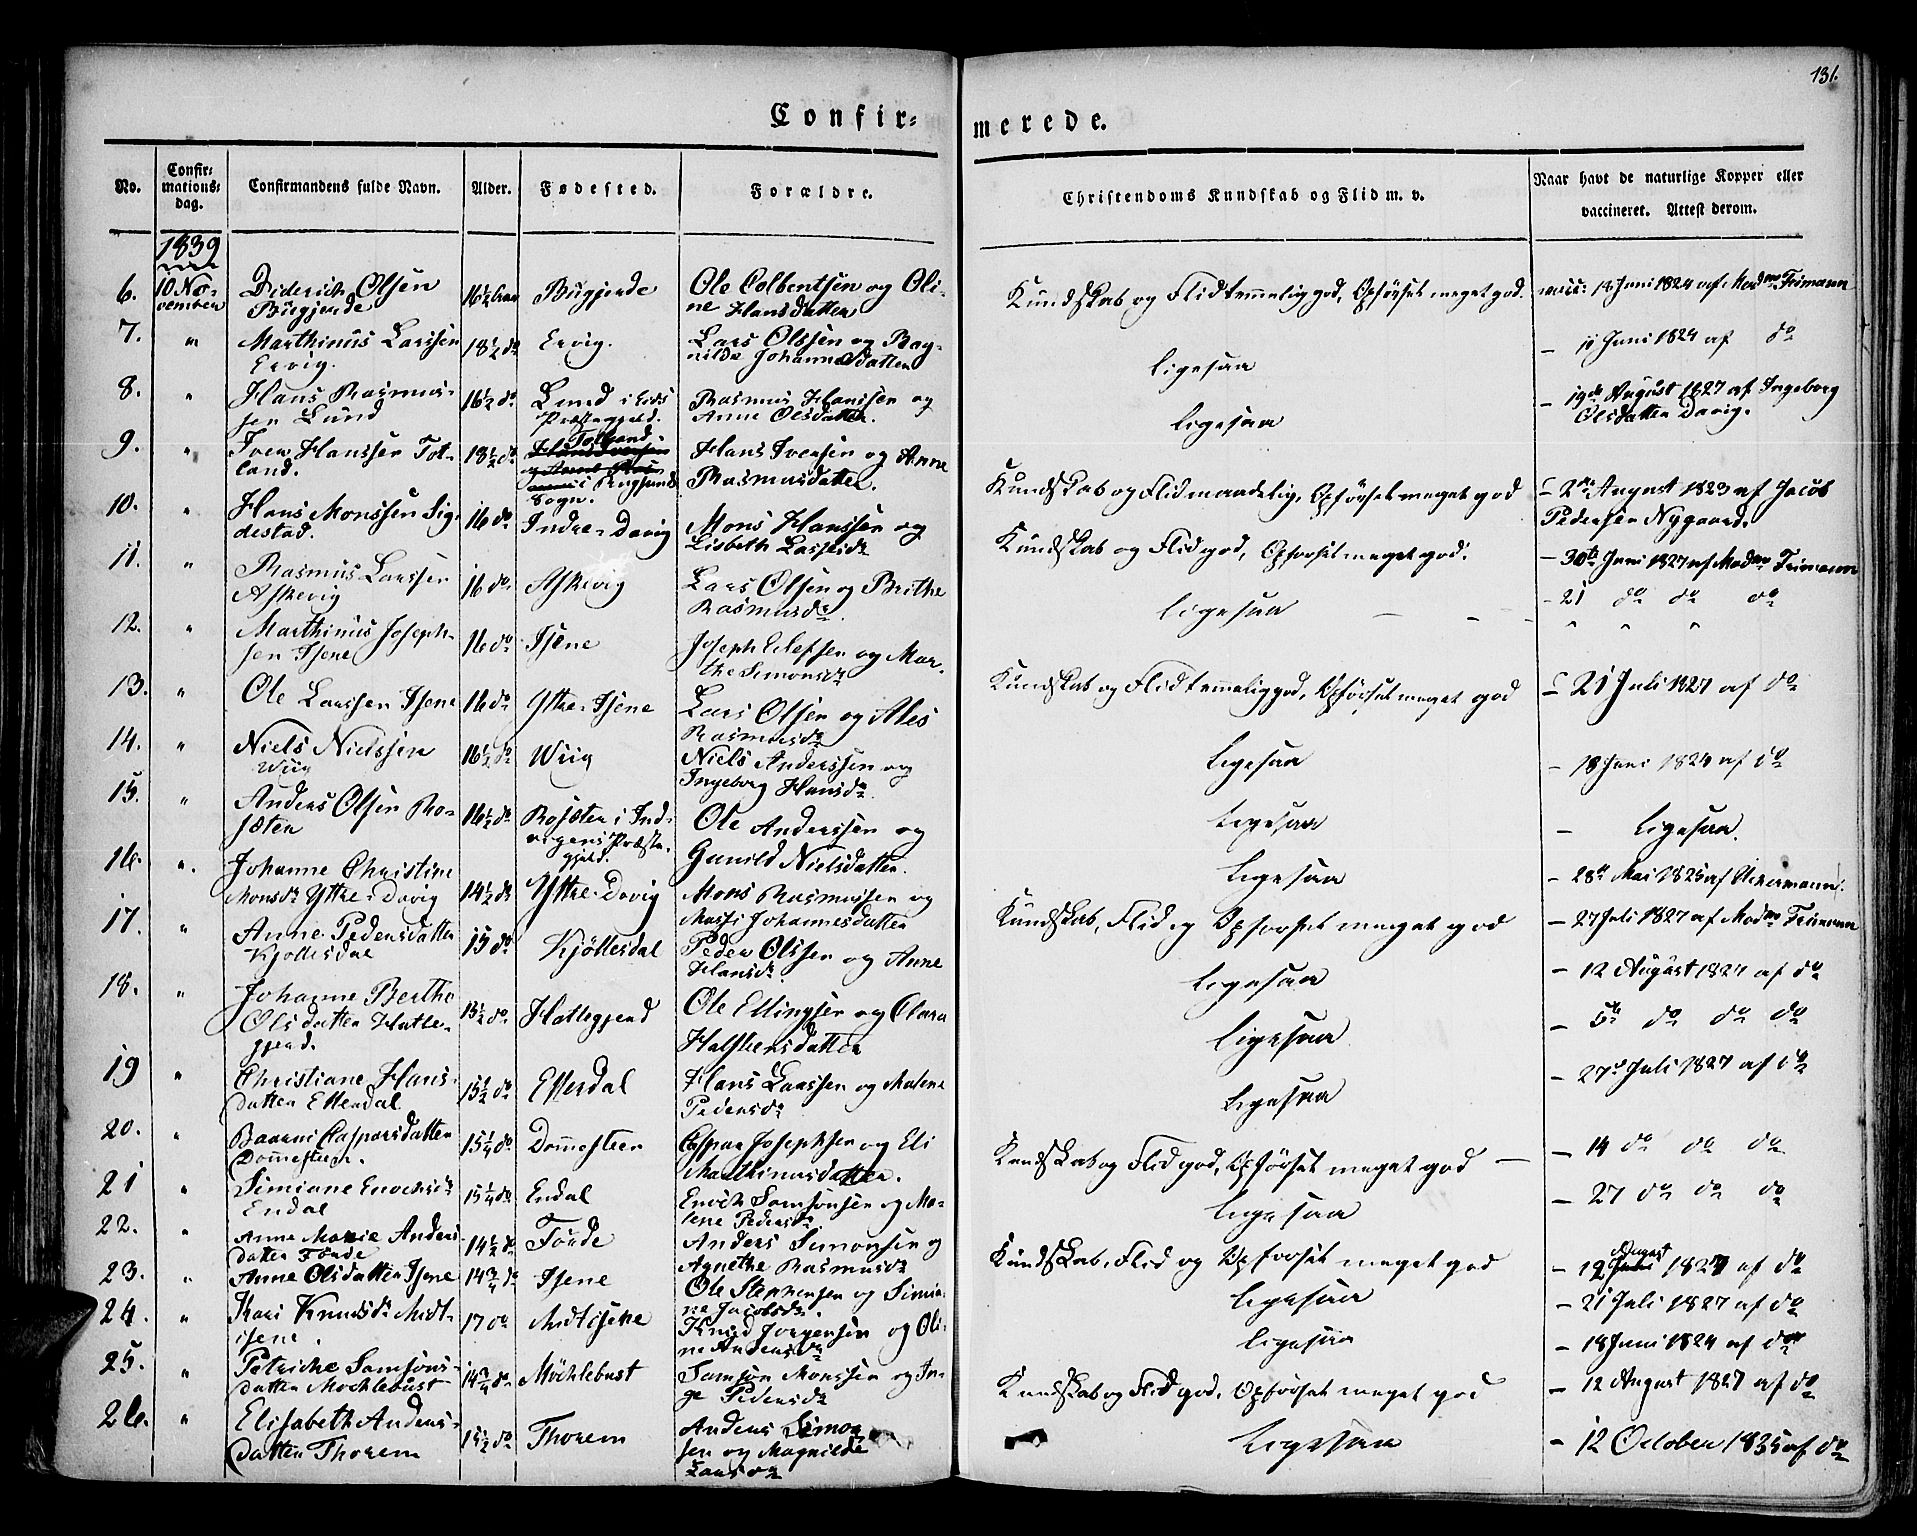 131.
Confirmerede.
No. Confirmationsdag. Confirmandens fulde Navn. Alder. Fødested. Forældre. Christendoms Kundskab og Flid m. v. Naar havt de naturlige Kopper eller vaccineret. Attest derom.
1839
6. 10 November Diderich Olsen Bügjerde 16½ Bügjerde Ole Colbentsen og Oline Hansdatter Kundskab og Flid temmelig god, Opførsel meget god. vacc: 18 Juni 1824 af Madme Frimann
7. " Marthinus Larssen Ervig. 18½ do Ervig. Lars Olssen og Ragnilde Johannesdatter Ligesaa — 11 Juni 1824 af do
8. " Hans Rasmussen Lund 16½ do Lund i Eids Præstegjeld. Rasmus Hanssen og Anne Olsdatter. Ligesaa — 19de August 1827 af Ingeborg Olsdatter Davig.
9. " Iver Hanssen Totland. 18½ do Totland i Rugsund Sogn. Hans Iversen og Anne Rasmusdatter. Kundskab og Flid maadelig, Opførsel meget god — 2de August 1823 af Jacob Pedersen Nygaard.
10. " Hans Monssen Sigdestad. 16 do Indre-Davig Mons Hanssen og Lisbeth Lassesdr Kundskab og Flid god, Opførsel meget god. — 30te Juni 1827 af Madme Frimann
11. " Rasmus Larssen Askevig 16 do. Askevig Lars Olsen og Brithe Rasmusdr. Ligesaa — 21 do do do
12. " Marthinus Josephsen Isene 16 do Isene Joseph Elefsen og Marthe Simonsdr — — — " " "
13. " Ole Larssen Isene 16 do Ytre-Isene Lars Olsen og Ales Rasmusdr Kundskab og Flid temmelig god, Opførsel meget god — 21 Juli 1827 af do
14. " Niels Nielssen Wiig 16½ do Wiig Niels Anderssen og Ingeborg Hansdr. Ligesaa — 18 Juni 1824 af do
15. " Anders Olsen Rosæten 16½ do Rosæten i Indvigens Præstegjeld. Ole Anderssen og Gunild Nielsdatter. Ligesaa — Ligesaa.
16. " Johanne Christine Monsdr Yttre-Davig 14½ do Yttre-Davig Mons Rasmussen og Massi Johannesdatter Ligesaa — 28de Mai 1825 af Akermann.
17. " Anne Pedersdatter Kjöllesdal 15 do Kjöllesdal Peder Olssen og Anne Hansdr Kundskab, Flid og Opførsel meget god — 27 Juli 1827 af Madme Friman
18. " Johanne Berthe Olsdatter Hatlegjerd. 15½ do. Hatlegjerd Ole Ellingsen og Clara Halstensdatter Ligesaa — 12 August 1827 af do
Ligesaa — 5te do do do
19 " Christiane Hansdatter Etterdal 15½ do Etterdal Hans Larssen og Malene Pedersdr Ligesaa — 27de Juli 1827 af do
20. " Baarni Caspersdatter Dommesteen. 15¼ do Dommesteen Caspar Josephsen og Eli Marthinusdatter. Kundskab og Flid god, Opførsel meget god — — 14 do do do
21 " Simiane Enochsdr Endal 15¼ do Endal Enoch Samsonsen og Malene Pedersdr Ligesaa — 27 do do do
22. " Anne Marie Andersdatter Förde 14½ do Förde Anders Simonsen og Agnethe Rasmusdr Kundskab, Flid og Opførsel meget god — 12 August 1827 af do
23. " Anne Olsdatter Isene 14¾ do Isene Ole Stephensen og Simiane Jacobsdr. Ligesaa — 21 Juli 1827 af do
24. " Kari Knudsdr Midtisene. 17 do Midtisene Knud Jorgensen og Oline Andersdr Ligesaa — 18 Juni 1824 af do
25. " Petriche Samsonsdatter Mochlebust 14¾ do. Möchlebust Samson Monssen og Inge Pedersdr Kundskab og Flid god, Opførsel meget god — 12 August 1827 af do
26. " Elisabeth Andersdatter Thorem 15½ do Thorem Anders Simonsen og Magnilde Larsdr Ligesaa — 12 October 1835 af do